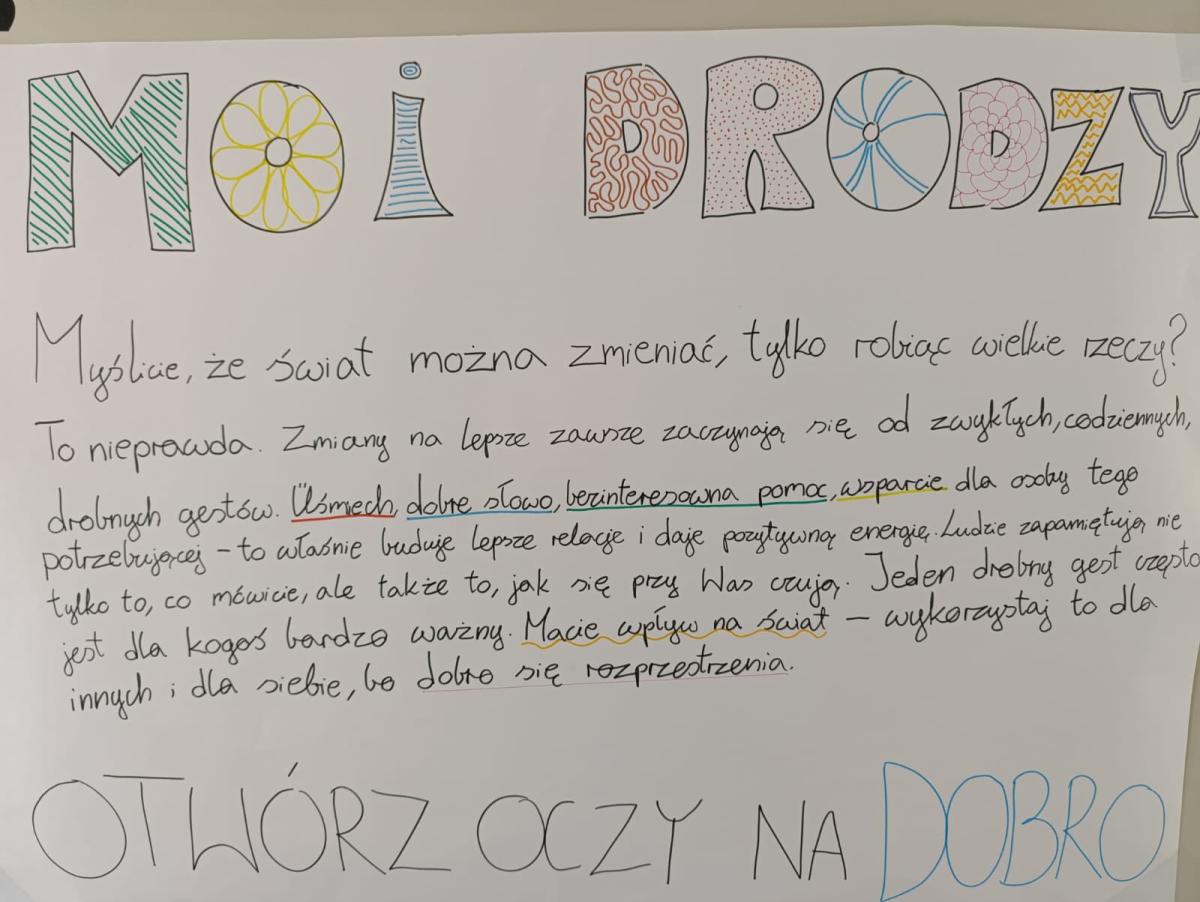 MOi DRODZY
Myślicie, że świat można zmieniać, tylko robiąc wielkie rzeczy?
To nieprawda. Zmiany na lepsze zawsze zaczynają się od zwykłych, codziennych,
drobnych gestów. Uśmiech, dobre słowo, bezinteresowna pomoc, wsparcie dla osoby tego
potrzebującej – to właśnie buduje lepsze relacje i daje pozytywną energię. Ludzie zapamiętują nie
tylko to, co mówicie, ale także to, jak się przy Was czują. Jeden drobny gest często
jest dla kogoś bardzo ważny. Macie wpływ na świat – wykorzystaj to dla
innych i dla siebie, bo dobro się rozprzestrzenia.
OTWÓRZ OCZY NA DOBRO